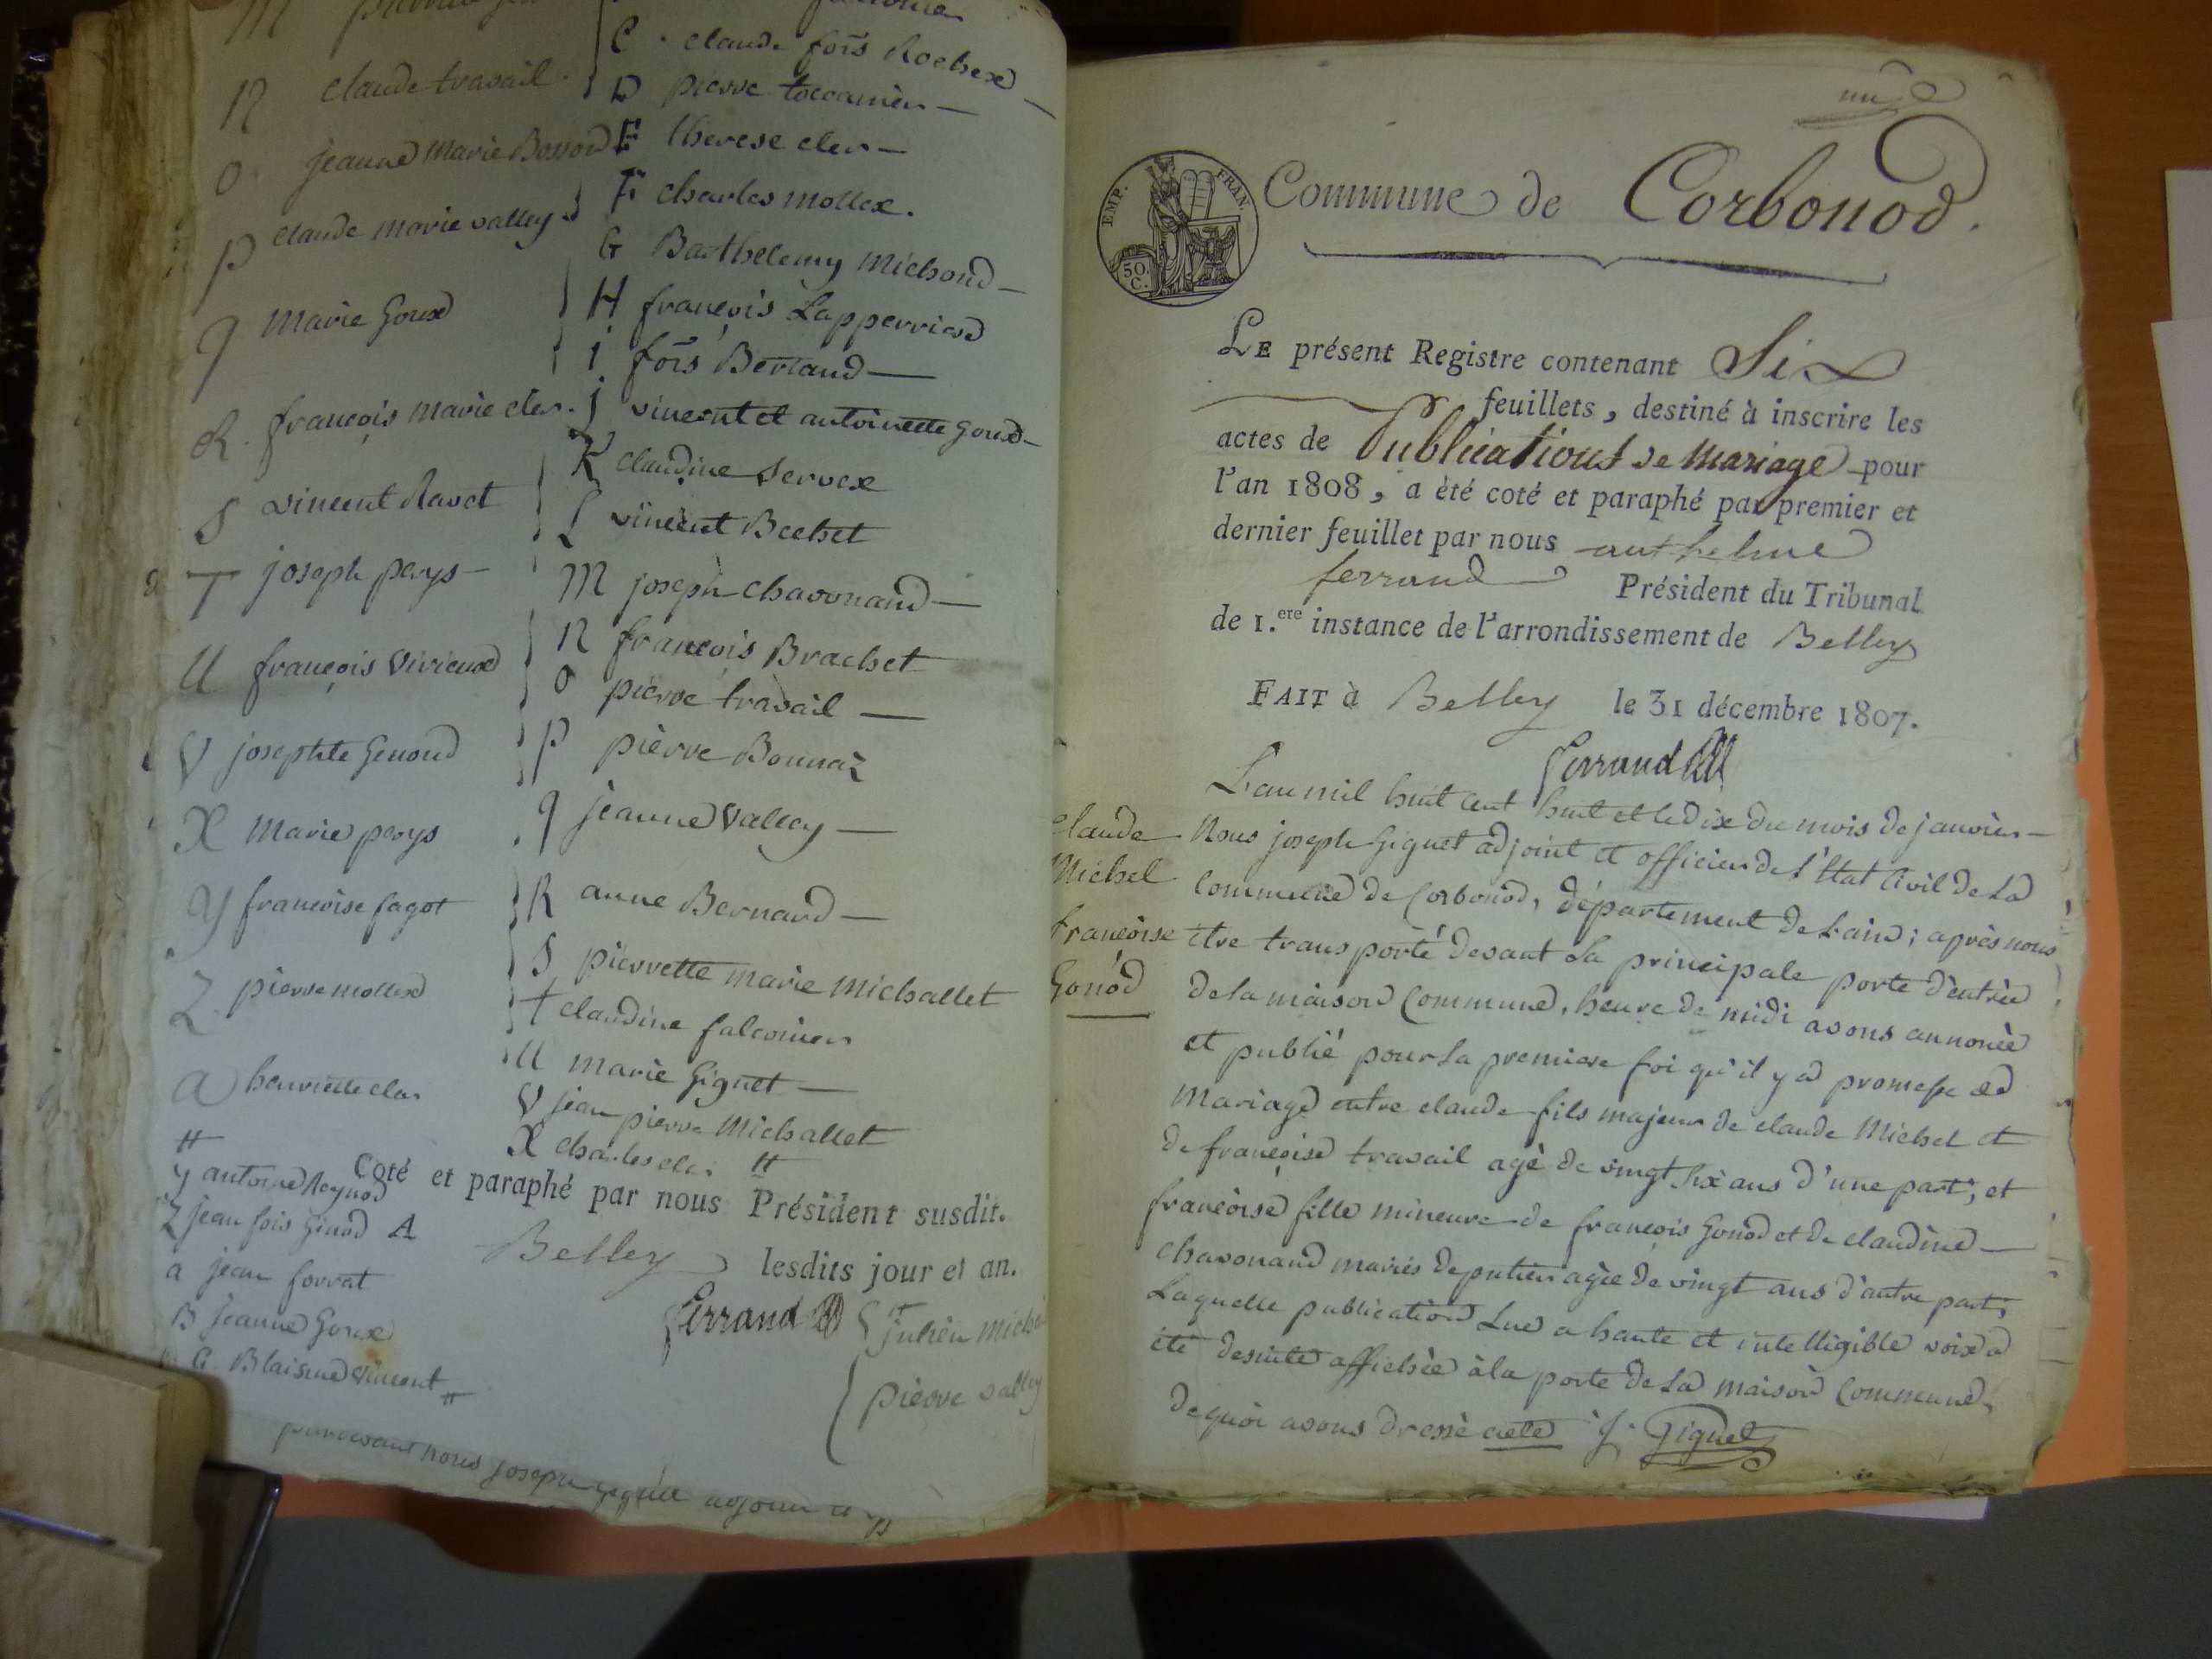 N claude travail.
O. jeanne Marie Bossond
P claude Marie valley.
q Marie Goux
R. françois marie cler.
S vincent Ravet
T joseph perys
U françois Virieux
V josephte Genoud
X Marie perys
Y françoise fagot
Z. pierre mollex
a henriette cler
#
y antoine Reynod
Z jean fois Ginod A
a jean forrat
B jeanne Goux
G. Blaisine Vincent #
C. claude fois Rochex
D pierre toccanier
E therese cler
F charles mollex.
G Barthelemy Michoud
H françois Lapperriere
i fois Bertand
j vincent et antoinette Goux
K claudine Servex
L vincent Bechet
M joseph chavonand
N francois Brachet
O pierre travail
P pierre Bonnaz
q jeanne Valley
R anne Bernard
S pierrette marie Michallet
t claudine falconier
U marie Giguet
V jean pierre Michallet
X charles cler #
Coté et paraphé par nous Président susdit.
Belley lesdits jour et an.
Ferrand
# julien Micha
pierre valley
pardevant nous joseph giguet adjoint et
un
EMP. FRAN.
50. C.
Commune de Corbonod.
LE présent Registre contenant Six
feuillets, destiné à inscrire les
actes de Publications de Mariage pour
l'an 1808, a été coté et paraphé par premier et
dernier feuillet par nous anthelme
ferrand Président du Tribunal
de 1.ere instance de l'arrondissement de Belley
FAIT à Belley le 31 décembre 1807.
Ferrand
claude
Michel
françoise
Gonod
L'an mil huit cent huit et le dix du mois de janvier
Nous joseph Giguet adjoint et officier de l'Etat Civil de La
Commune de Corbonod, département de L'ain; après nous
être transporté devant La principale porte d'entrée
de la maison Commune, heure de midi avons annoncé
et publié pour La premiere foi qu'il y a promesse de
Mariage entre claude fils majeur de claude Michel et
de françoise travail agé de vingt six ans d'une part, et
françoise fille mineure de françois Gonod et de claudine
chavonand mariés de putier agée de vingt ans d'autre part,
Laquelle publication Lue a haute et intelligible voix a
été desuite affichée à la porte de La maison Commune,
de quoi avons dressé acte J. Giguet